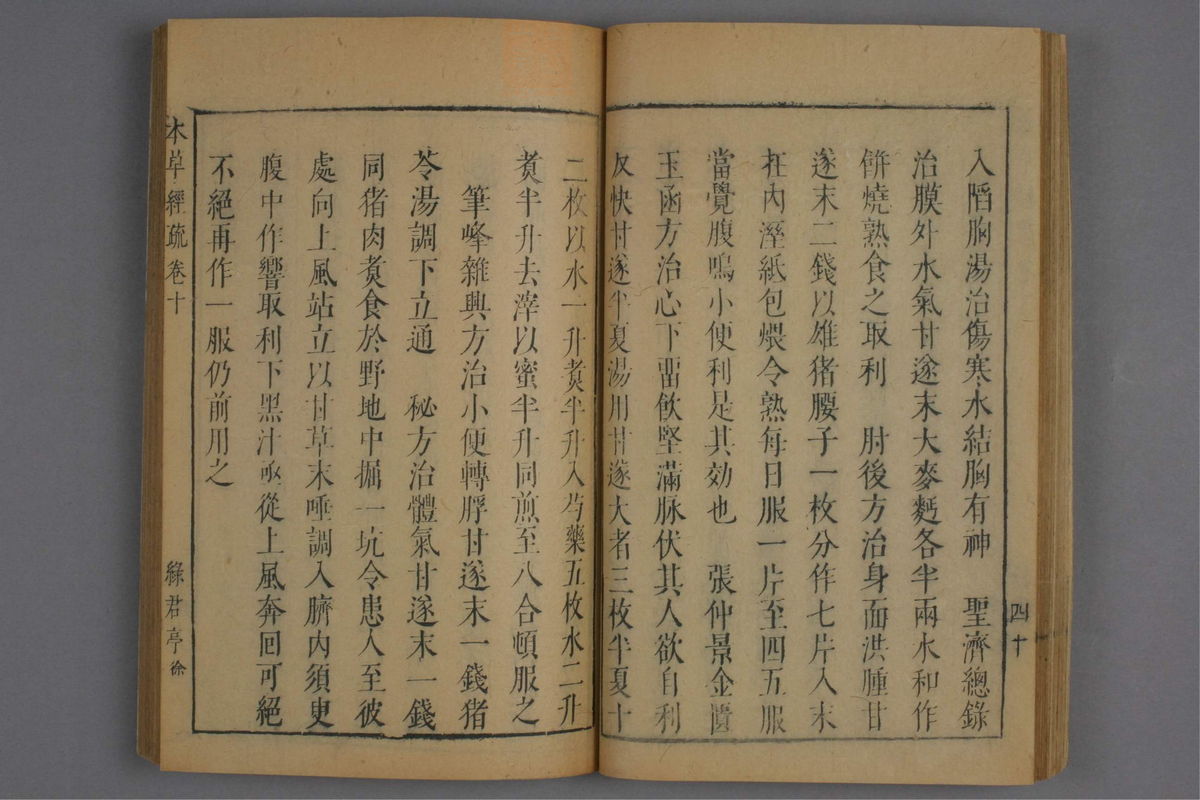 入陷胸湯治傷寒水結胸有神　聖濟總錄
治膜外水氣甘遂末大麥麪各半兩水和作
餅燒熟食之取利　肘後方治身面洪腫甘
遂末二錢以雄猪腰子一枚分作七片入末
在內溼紙包煨令熟每日服一片至四五服
當覺腹鳴小便利是其効也　張仲景金匱
玉函方治心下畱飲堅滿脉伏其人欲自利
反快甘遂半夏湯用甘遂大者三枚半夏十
四十
二枚以水一升煑半升入芍藥五枚水二升
煑半升去滓以蜜半升同煎至八合頓服之
筆峰雜興方治小便轉脬甘遂末一錢猪
苓湯調下立通　秘方治體氣甘遂末一錢
同猪肉煑食於野地中掘一坑令患人至彼
處向上風站立以甘草末唾調入臍內須臾
腹中作響取利下黑汁亟從上風奔回可絕
不絕再作一服仍前用之
本草經疏卷十
綠君亭 徐